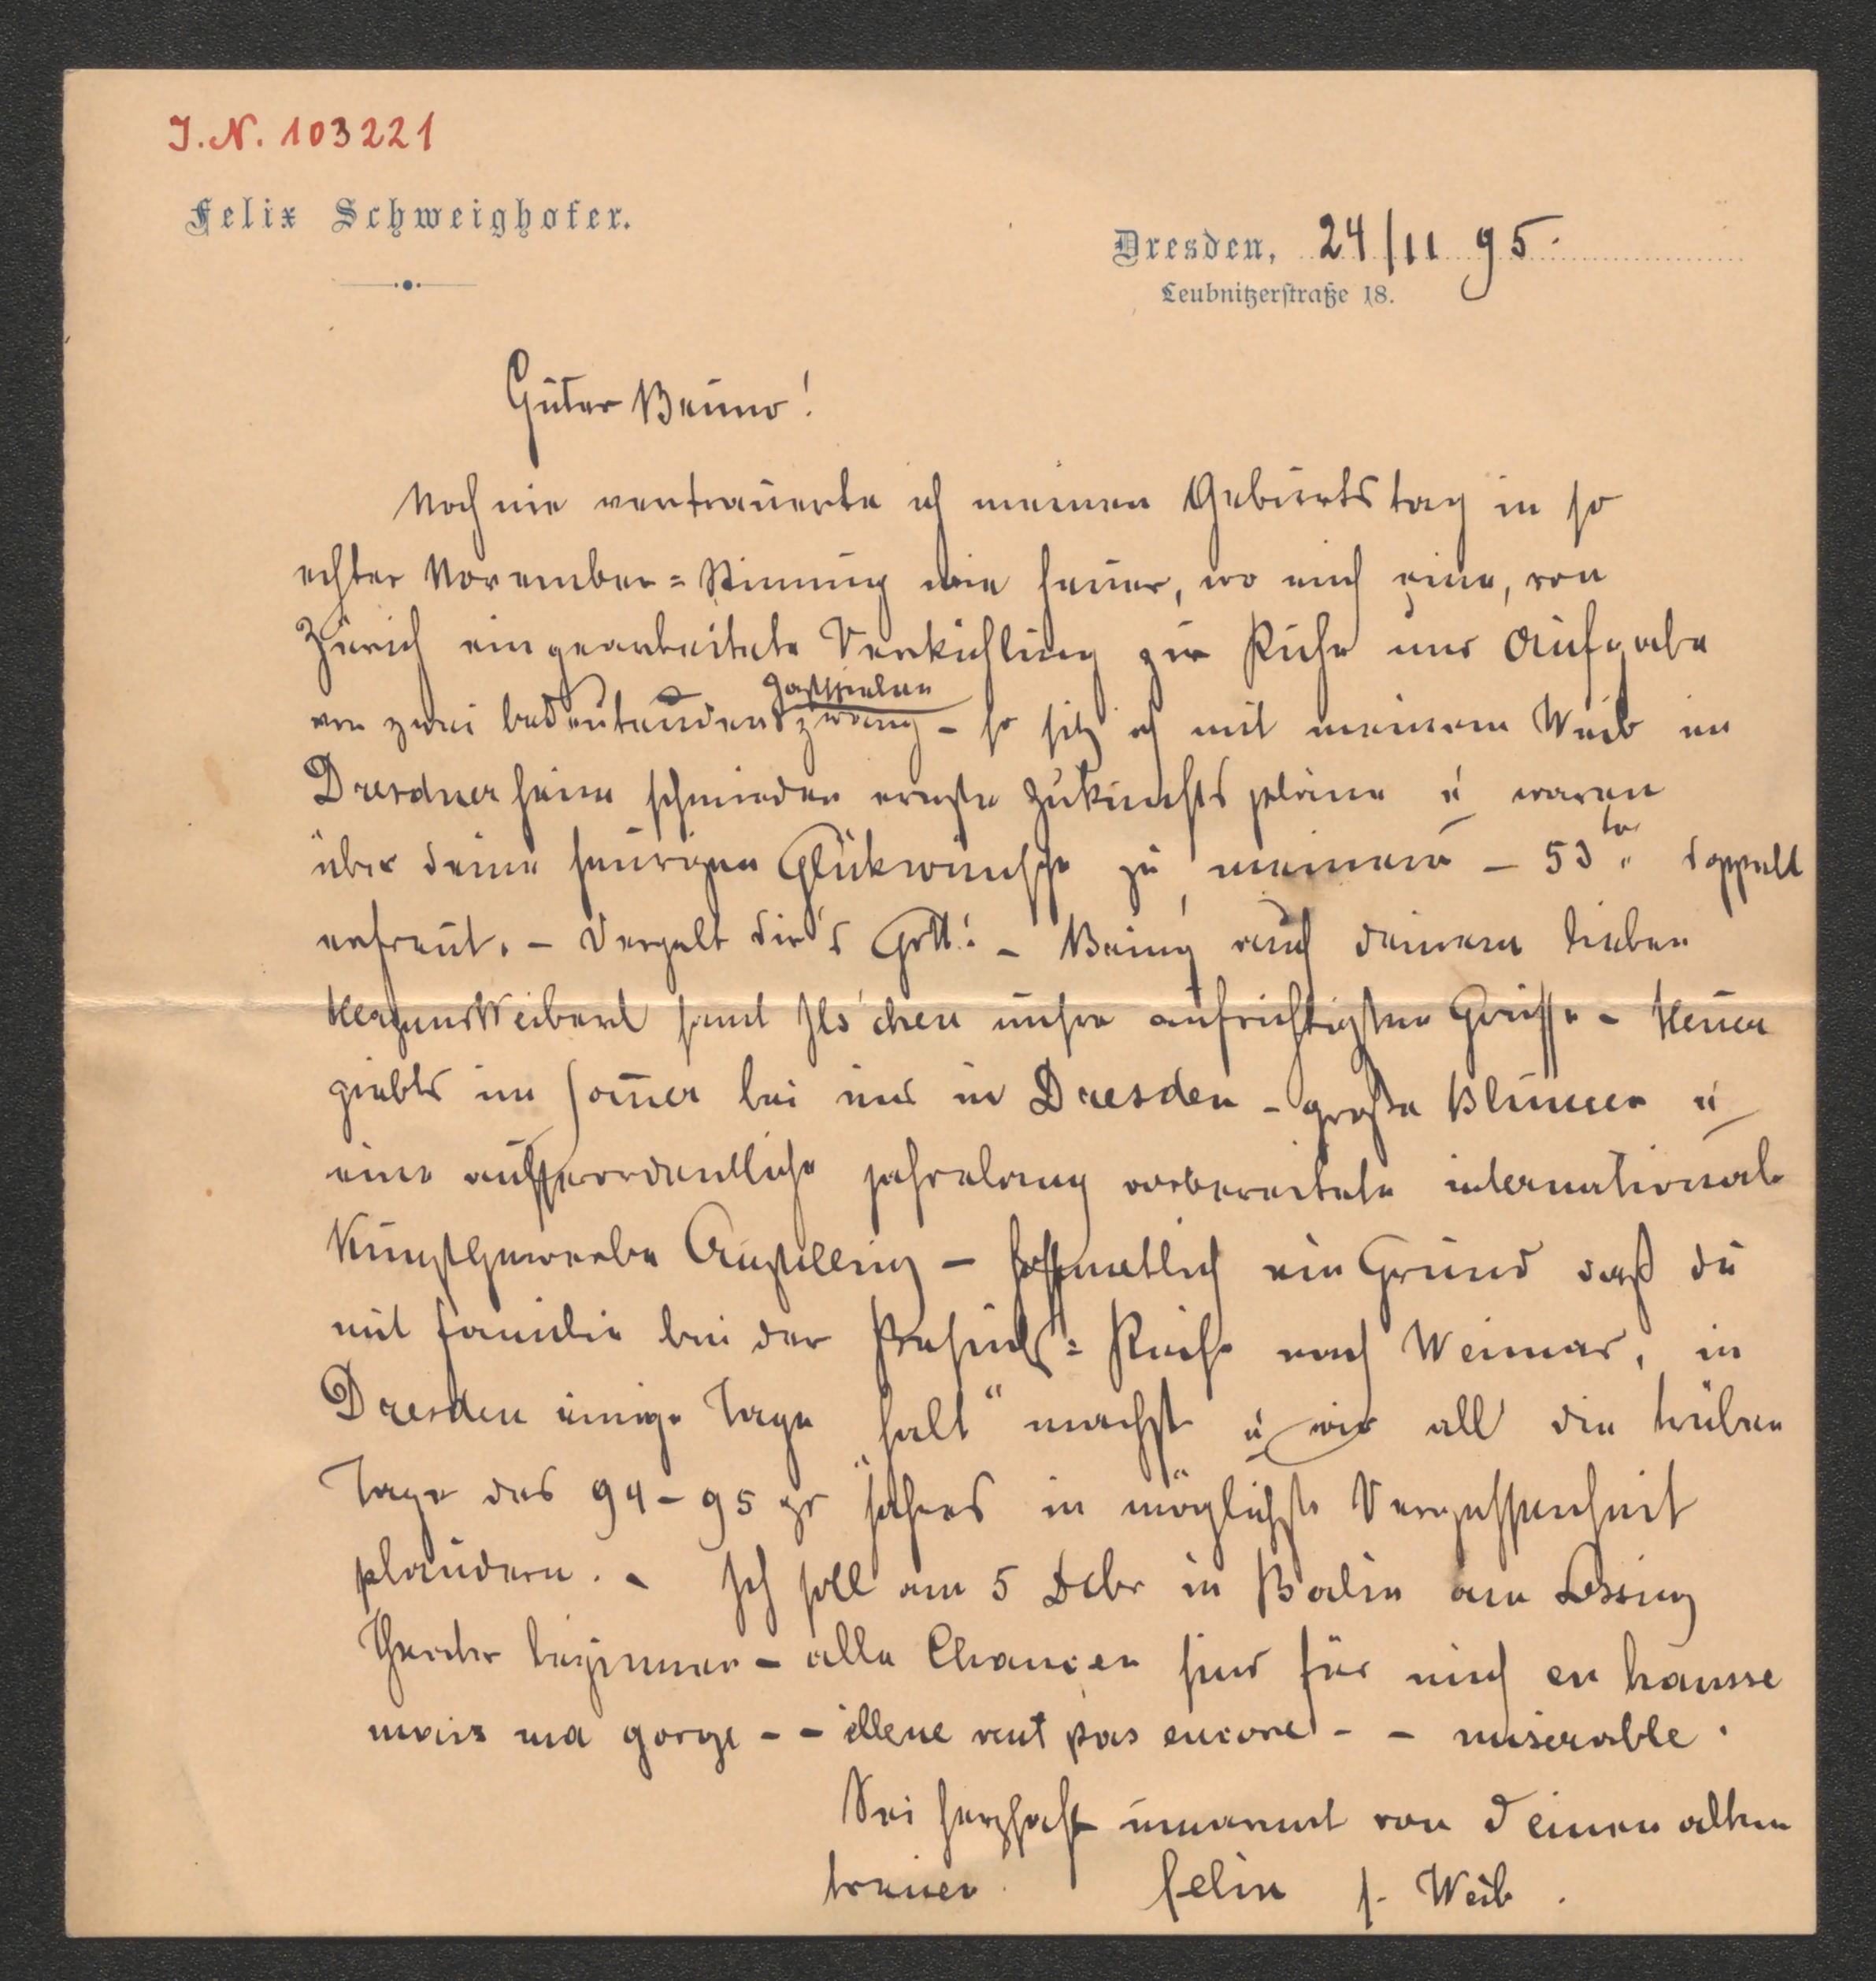 J.N. 103221
Felix Schweighofer.
Dresden, 24/11 95.
Leubnitzerstraße 18.
Guter Bruno!
Noch nie vertrauerte ich meinen Geburtstag in so
echter November=Stimung wie heuer, wo mich eine, von
Zürich eingearbeitete Verkühlung zur Ruhe und Aufgabe
von zwei bedeutenden Gastspielen zwang – so sitz ich mit meinem Weib im
Dresdner heim schmieden ernste Zukunftspläne u waren
über deine heurigen Glükwünsche zu meinem – 53 ta doppelt
erfreut. – Vergelt dir's Gott! – Bring auch deinem lieben
HerzensWeiberl samt Ils'chen unsre aufrichtigsten Grüsse – Heuer
giebts im Somer bei uns in Dresden – große Blumen u
eine aufserordentliche jahrelang vorbereitete international
Kunstgewerbe Austellung – hoffentlich ein Grund daß du
mit Familie bei der Besuchs=Reise nach Weimar, in
Dresden einige Tage „halt“ machst u wir all die trüben
Tage des 94–95 gr Jahres in möglichste Vergessenheit
plaudern. – Ich soll am 5 Dcbr in Berlin am Lessing
Theater beginnen – alle Chancen sind für mich en hausse
mais ma gorge – – elle ne veut pas encore – – miserable.
Sei herzhaft umarmt von Deinem alten
treuen Felix s. Weib.